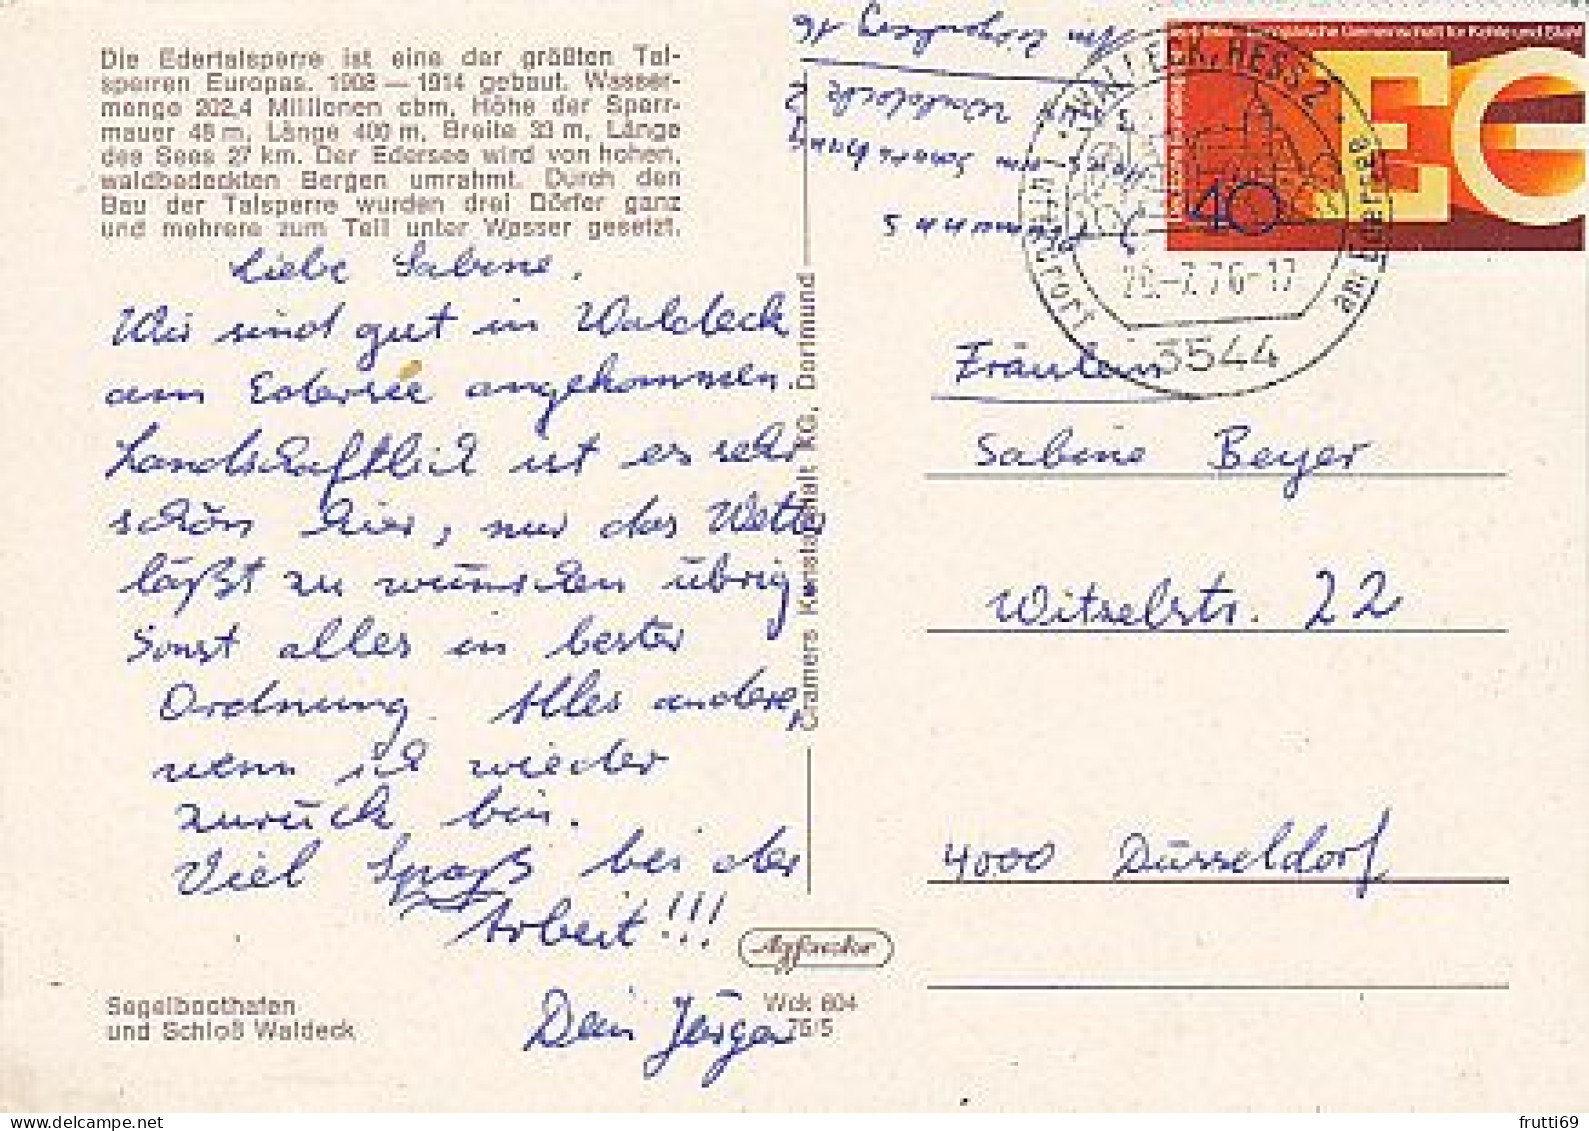 Die Edertalsperre ist eine der größten Tal-
sperren Europas. 1908 — 1914 gebaut. Wasser-
menge 202,4 Millionen cbm, Höhe der Sperr-
mauer 48 m, Länge 400 m, Breite 33 m, Länge
des Sees 27 km. Der Edersee wird von hohen,
waldbedeckten Bergen umrahmt. Durch den
Bau der Talsperre wurden drei Dörfer ganz
und mehrere zum Teil unter Wasser gesetzt.
Liebe Sabine,
Wir sind gut in Waldeck
am Edersee angekommen.
Landschaftlich ist es sehr
schön hier, nur das Wetter
läßt zu wünschen übrig
Sonst alles in bester
Ordnung. Alles andere,
wenn ich wieder
zurück bin.
Viel Spaß bei der
Arbeit!!!
Dein Jürgen
Segelboothafen
und Schloß Waldeck
Cramers Kunstanstalt KG, Dortmund
Agfacolor
Wck 604
76/5
Waldeck
WALDECK, HESS 2
am Edersee
20.-7.76-17
3544
Europäische Gemeinschaft für Kohle und Stahl
EG
40
Fräulein
Sabine Beyer
Witzelstr. 22
4000 Düsseldorf
frutti69